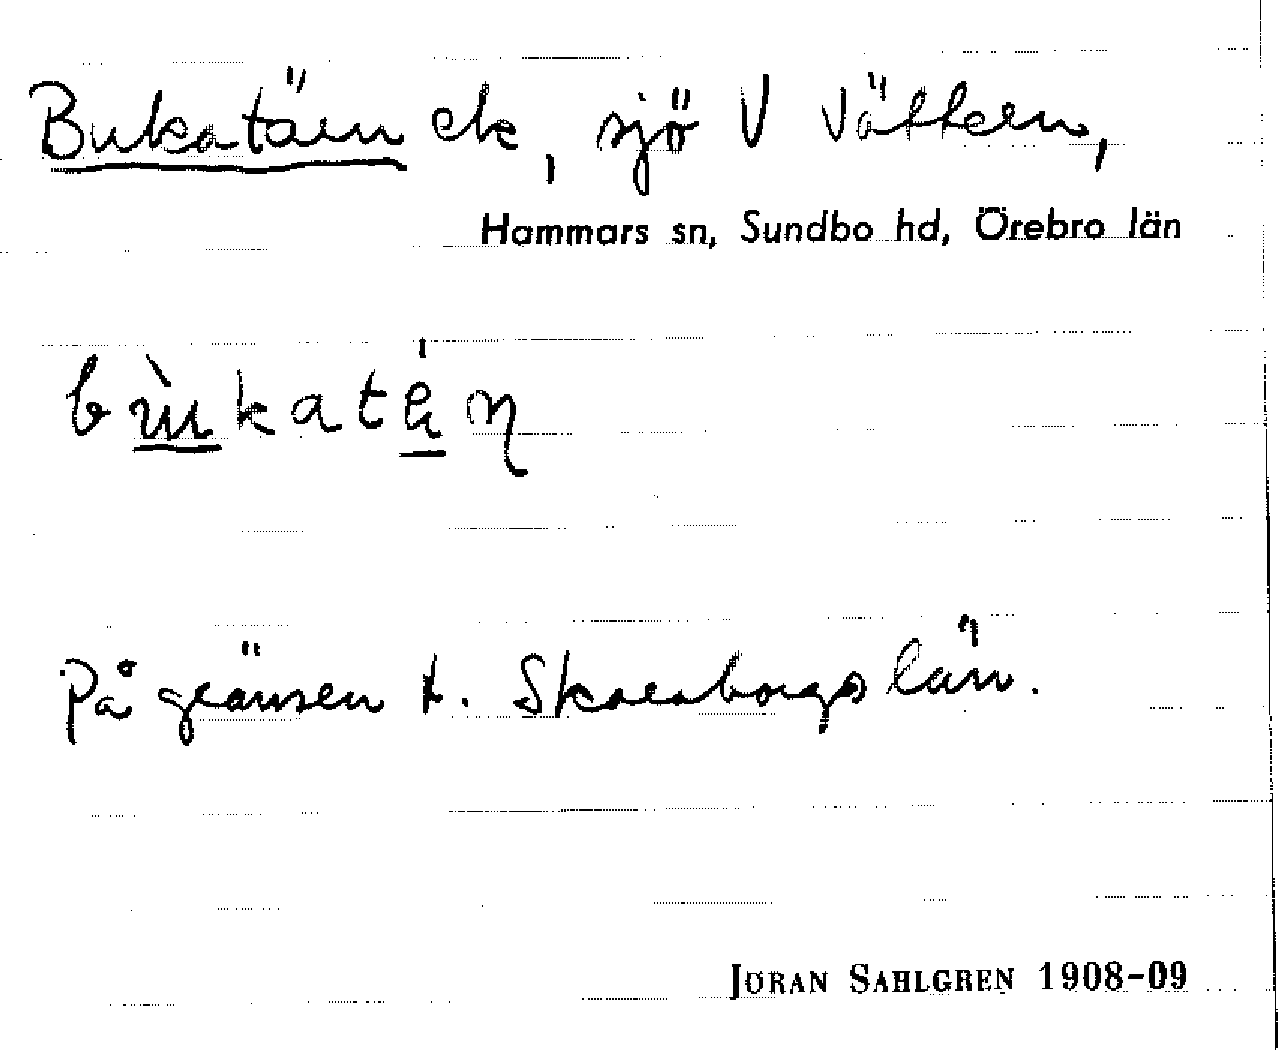 Bukatärn ek, sjö V Vättern,
Hammars sn, Sundbo hd, Örebro län
På gränsen t. Skaraborgs län.
JÖRAN SAHLGREN 1908-09